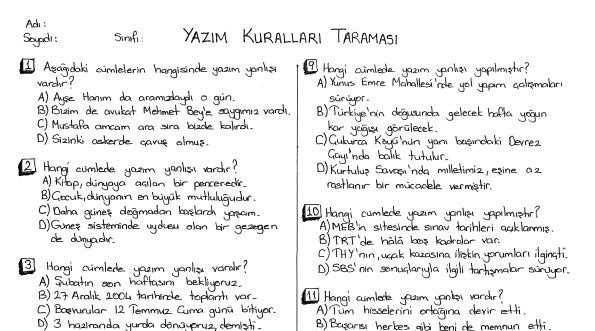 Adı:
Soyadı:
Sınıfı:
YAZIM KURALLARI TARAMASI
1 Aşağıdaki cümlelerin hangisinde yazım yanlışı
vardır?
A) Ayşe Hanım da aramızdaydı o gün.
B) Bizim de avukat Mehmet Bey'e saygımız vardı.
C) Mustafa amcam ara sıra bizde kalırdı.
D) Sizinki askerde çavuş olmuş.
2 Hangi cümlede yazım yanlışı vardır?
A) Kitap, dünyaya açılan bir penceredir.
B) Çocuk, dünyanın en büyük mutluluğudur.
C) Daha güneş doğmadan başlardı yaşam.
D) Güneş sisteminde uydusu olan bir gezegen
de dünyadır.
3 Hangi cümlede yazım yanlışı vardır?
A) Şubatın son haftasını bekliyoruz.
B) 27 Aralık 2004 tarihinde toplantı var.
C) Başvurular 12 Temmuz Cuma günü bitiyor.
D) 3 haziranda yurda dönüyoruz, demişti.
9 Hangi cümlede yazım yanlışı yapılmıştır?
A) Yunus Emre Mahallesi'nde yol yapım çalışmaları
sürüyor.
B) Türkiye'nin doğusunda gelecek hafta yoğun
kar yağışı görülecek.
C) Çukurca Köyü'nün yanı başındaki Devrez
Çayı'nda balık tutulur.
D) Kurtuluş Savaşı'nda milletimiz, eşine az
rastlanır bir mücadele vermiştir.
10 Hangi cümlede yazım yanlışı yapılmıştır?
A) MEB'in sitesinde sınav tarihleri açıklanmış.
B) TRT'de hâlâ boş kadrolar var.
C) THY'nın, uçak kazasına ilişkin yorumları ilginçti.
D) SBS'nin sonuçlarıyla ilgili tartışmalar sürüyor.
11 Hangi cümlede yazım yanlışı vardır?
A) Tüm hisselerini ortağına devir etti.
B) Başarısı herkes gibi beni de memnun etti.